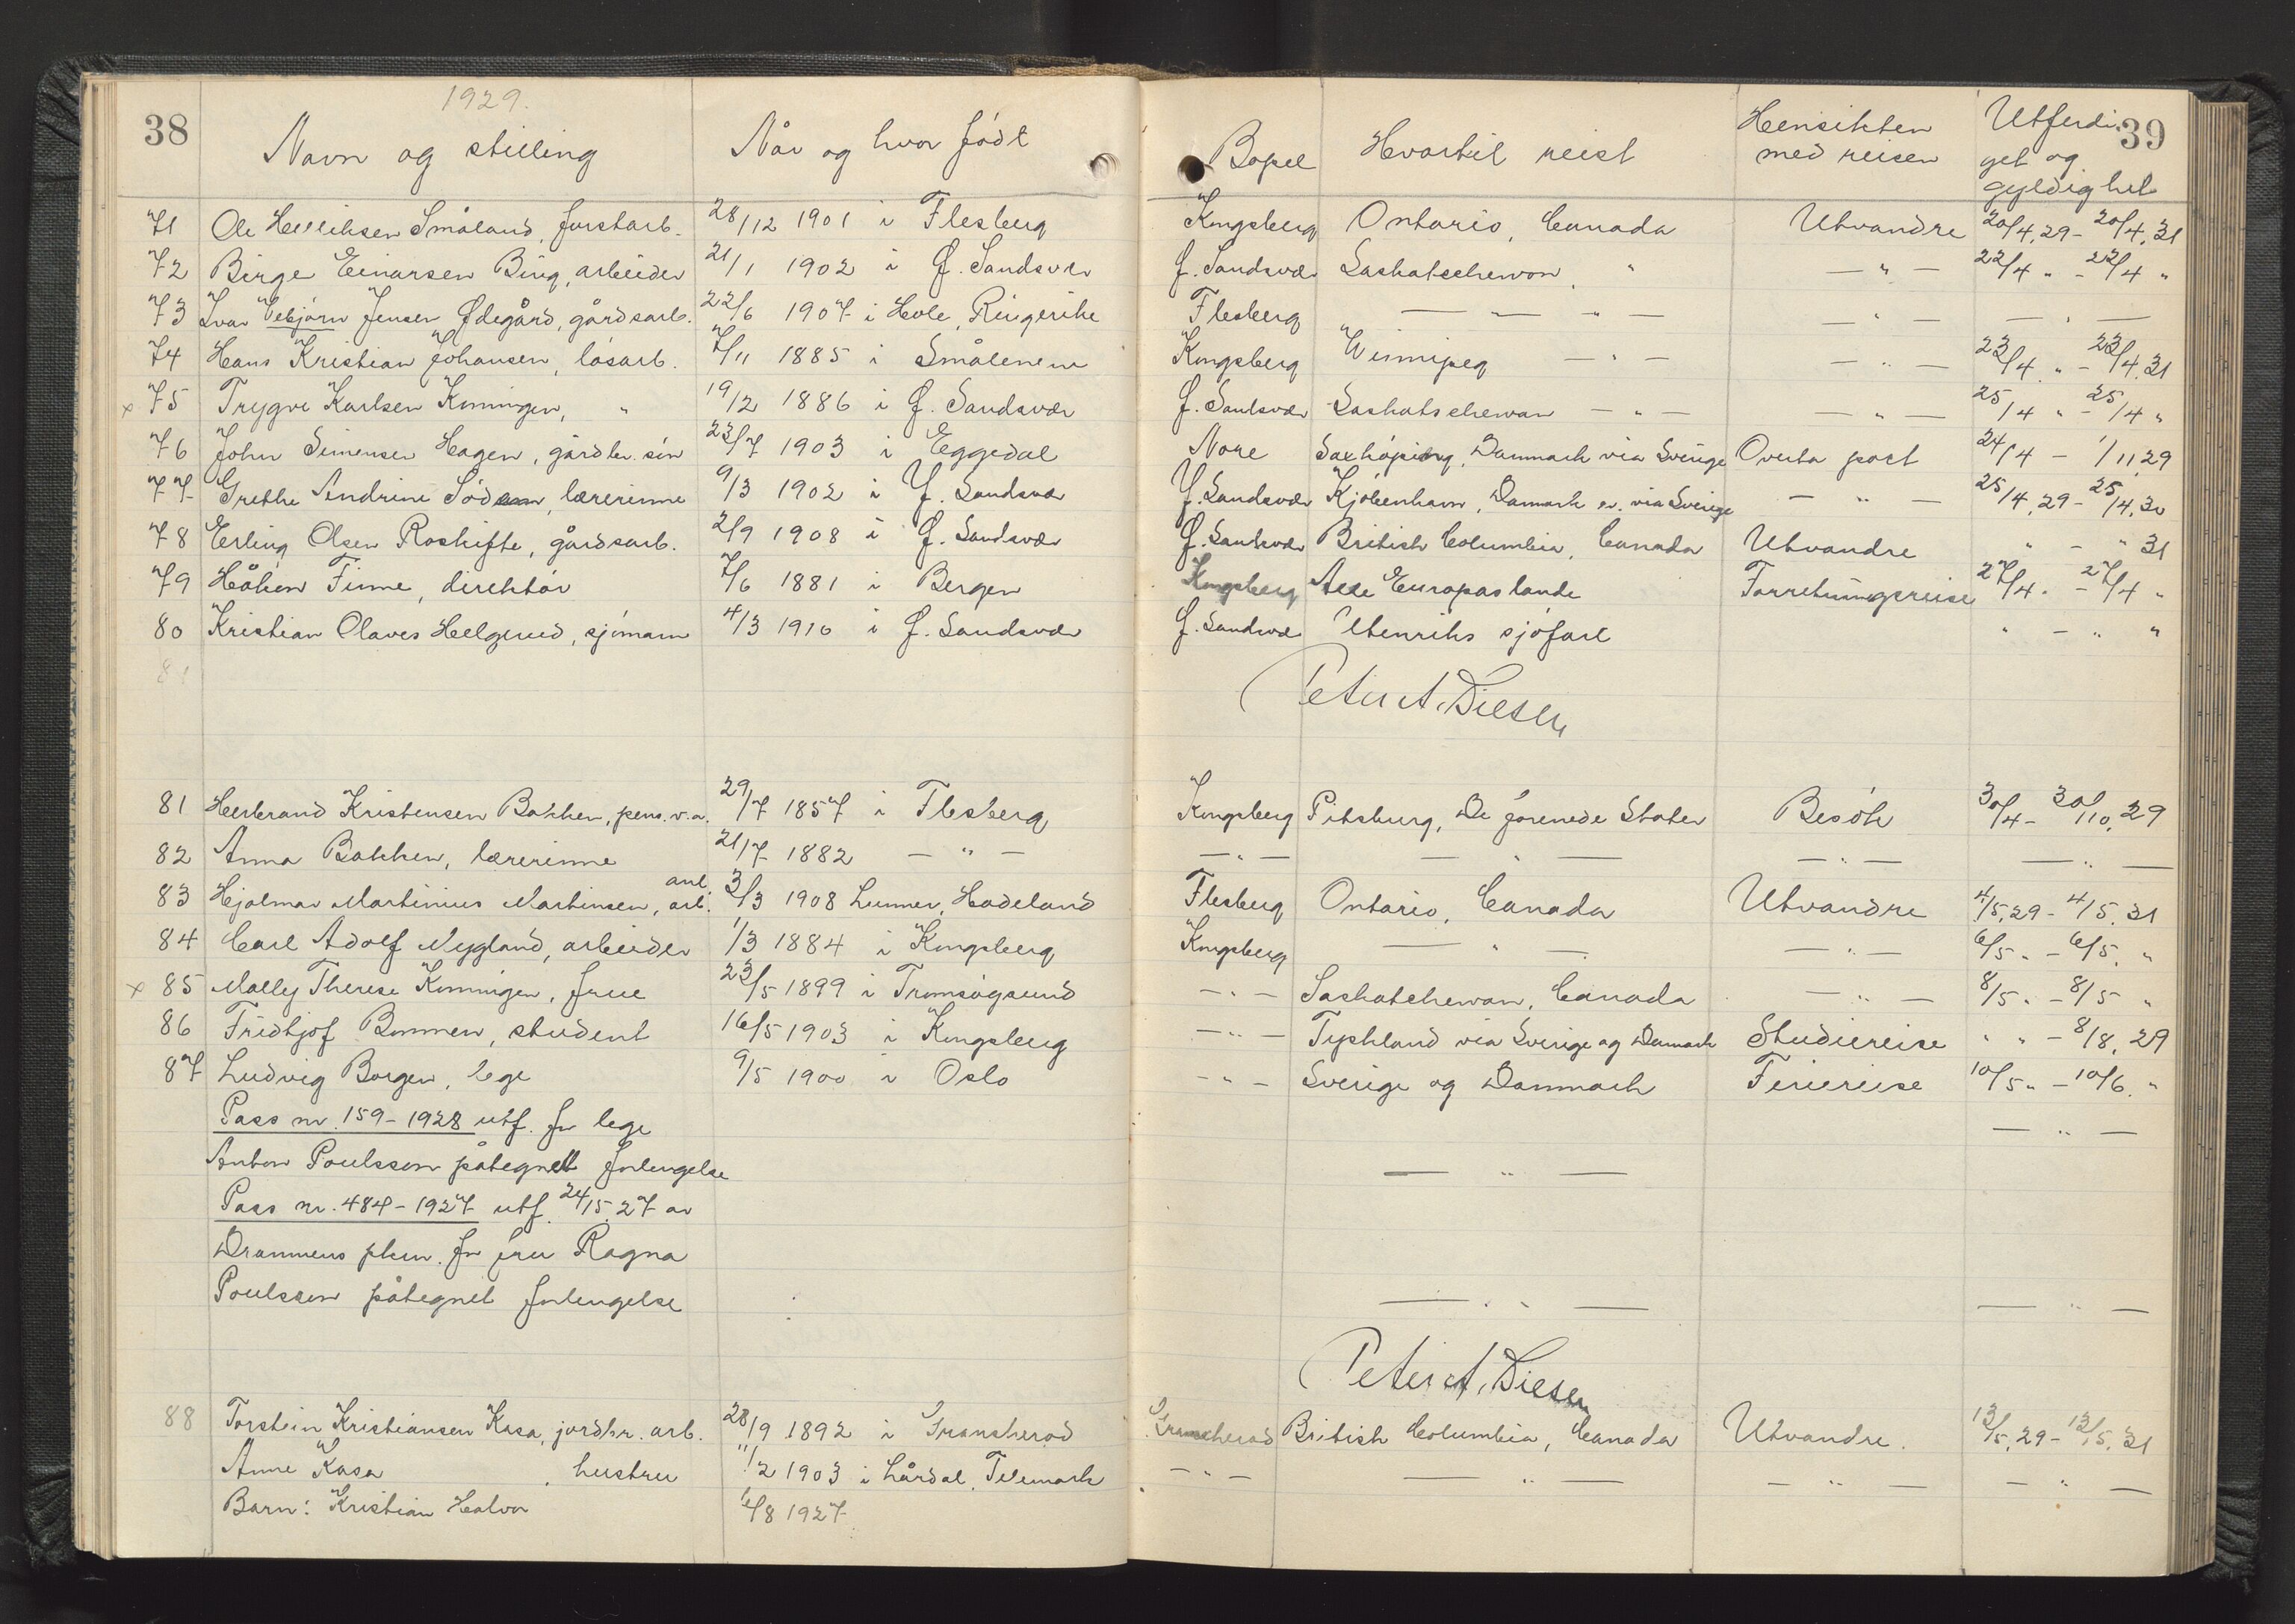 38
1929.
Navn og stilling Når og hvor født
Bopel Hvortil reist Hensikten med reisen Utferdiget og gyldighet
39
71 Ole Helliksen Småland, forstarb. 28/12 1901 i Flesberg Kongsberg Ontario, Canada Utvandre 20/4.29 - 20/4.31
72 Birge Einarsen Bing, arbeider 21/1 1902 i Ø. Sandsvær Ø. Sandsvær Saskatschewan, " — " — 22/4 " - 22/4 "
73 Ivar Vebjørn Jensen Ødegård, gårdsarb. 22/6 1907 i Hole, Ringerike Flesberg — " — " — — " — — " —
74 Hans Kristian Johansen, løsarb. 7/11 1885 i Smålenene Kongsberg Winnipeg — " — — " — 23/4 " - 23/4.31
x 75 Trygve Karlsen Konningen, " 19/2 1886 i Ø. Sandsvær Ø. Sandsvær Saskatschewan — " — — " — 25/4 " - 25/4 "
76 John Simensen Hagen, gårdbr. søn 23/7 1903 i Eggedal Nore Saxkøping, Danmark via Sverige Overta post 24/4 - 1/11.29
77 Grethe Andrine, lærerinne 9/3 1902 i Y. Sandsvær Y. Sandsvær Kjøbenhavn, Danmark via Sverige — " — 25/4.29 - 25/4.30
78 Erling Olsen Roshifte, gårdsarb. 2/9 1908 i Ø. Sandsvær Ø. Sandsvær British Columbia, Canada Utvandre " - " 31
79 Håkon Finne, direktør 7/6 1881 i Bergen Kongsberg Alle Europas lande Forretningsreise 27/4 " - 27/4 "
80 Kristian Olaves Helgerud, sjømann 4/3 1910 i Ø. Sandsvær Ø. Sandsvær Utenriks sjøfart " - " "
81
Peter A. Diesen
81 Herbrand Kristensen Bakken, pens. v.a. 29/7 1857 i Flesberg Kongsberg Pitsburg, De forenede Stater Besøk 30/4 - 30/10.29
82 Anna Bakken, lærerinne 21/7 1882 — " — — " — — " — — " — — " —
83 Hjalmar Martinius Martinsen, anl. arb. 3/3 1908 Lunner, Hadeland Flesberg Ontario, Canada Utvandre 4/5.29 - 4/5.31
84 Carl Adolf Nygland, arbeider 1/3 1884 i Kongsberg Kongsberg — " — — " — 6/5 " - 6/5. "
x 85 Molly Therese Konningen, frue 23/5 1899 i Tromsøysund — " — Saskatchewan, Canada — " — 8/5 " - 8/5 "
86 Fridtjof Bommen, student 16/5 1903 i Kongsberg — " — Tyskland via Sverige og Danmark Studiereise " " - 8/8.29
87 Ludvig Borgen, lege 9/5 1900 i Oslo — " — Sverige og Danmark Feriereise 10/5 " - 10/6. "
Pass nr. 159 - 1928 utf. for lege — " —
Anton Poulsson påtegnet forlengelse — " —
Pass nr. 484 - 1927 utf. 24/5.27 av
Drammens pkm. for fru Ragna
Poulsson påtegnet forlengelse — " — — " —
Peter A. Diesen
88 Torstein Kristiansen Kasa, jordbr. arb. 28/9 1892 i Gransherad Gransherad British Columbia, Canada Utvandre. 13/5.29 - 13/5.31
Anne Kasa, hustru 11/2 1903 i Lårdal, Telemark — " — — " — — " — — " —
Barn: Kristian Halvor 6/8 1927